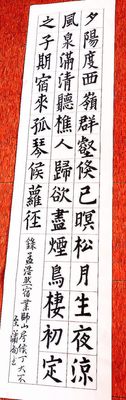 夕陽度西嶺群壑倏已暝松月生夜涼
風泉滿清聽樵人歸欲盡煙鳥棲初定
之子期宿來孤琴候蘿徑
錄孟浩然宿業師山房候丁大不
至